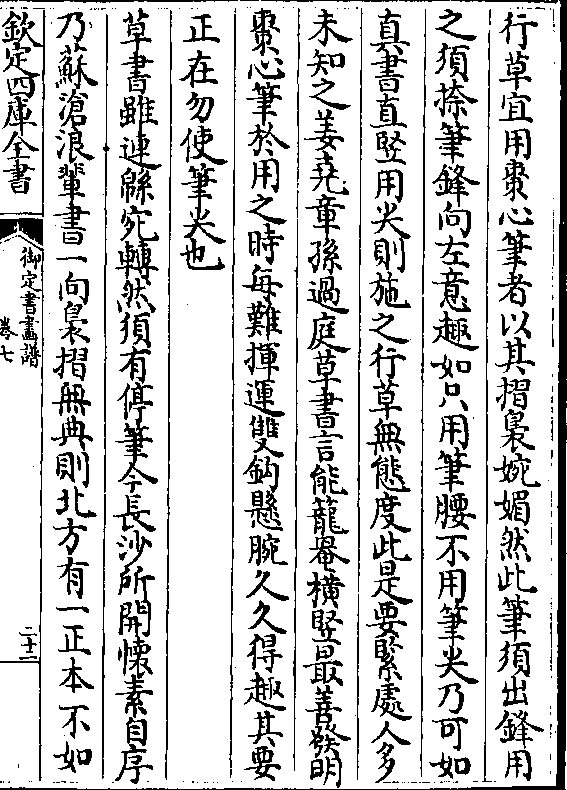 行草宜用棗心筆者以其摺裊婉媚然此筆須出鋒用
之須捺筆鋒向左意趣如只用筆腰不用筆尖乃可如
真書直竪用尖則施之行草無態度此是要緊處人多
未知之姜堯章孫過庭草書言能籠罨横竪最善發明
棗心筆於用之時每難揮運雙鈎懸腕久久得趣其要
正在勿使筆尖也
草書雖連緜宛轉然須有停筆今長沙所開懷素自序
乃蘇滄浪輩書一向裊摺無典則北方有一正本不如
欽定四庫全書
御定書畫譜
卷七
二十二